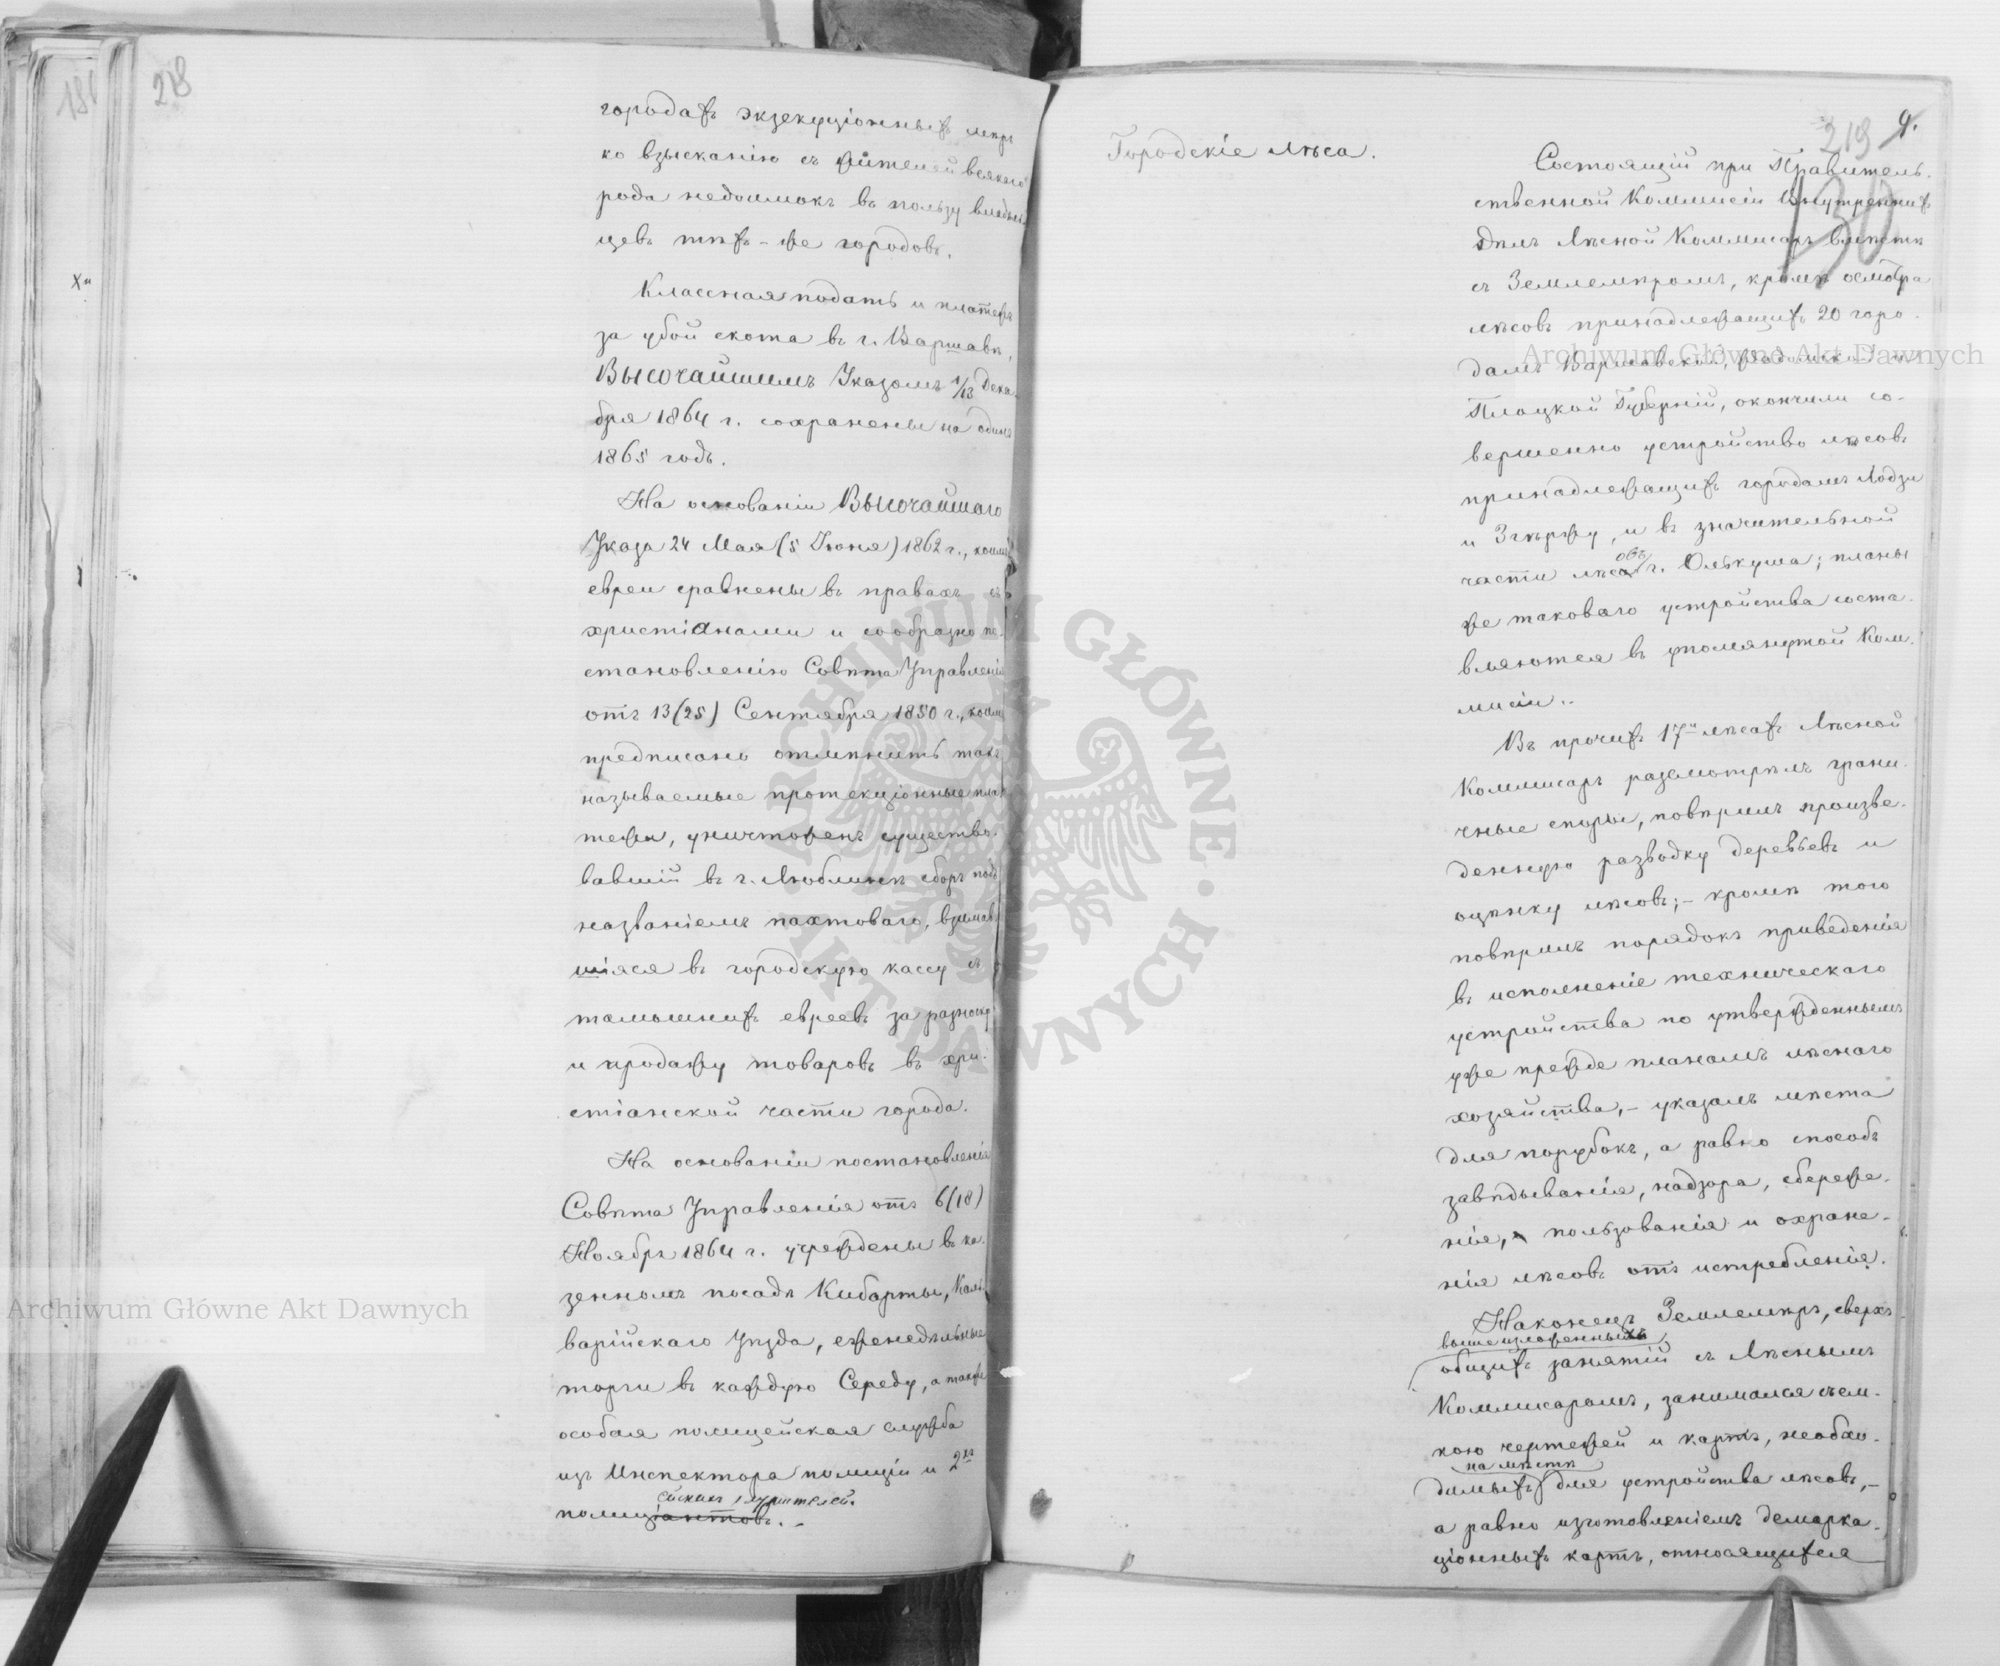 218
городахъ экзекуціонныхъ мѣръ
ко взысканію съ жителей всякаго
рода недоимокъ въ пользу владѣль
цевъ тѣхъ-же городовъ.
Классная подать и платежъ
за убой скота въ г. Варшавѣ,
ВЫСОЧАЙШИМЪ Указомъ 1/13 Дека-
бря 1864 г. сохранены на одинъ
1865 годъ.
На основаніи ВЫСОЧАЙШАГО
Указа 24 Мая (5 Іюня) 1862 г., коимъ
евреи сравнены въ правахъ съ
христіанами и сообразно по-
становленію Совѣта Управленія
отъ 13(25) Сентября 1850 г., коимъ
предписано отмѣнить такъ
называемые протекціонные пла-
тежи, уничтоженъ существо-
вавшій въ г. Люблинѣ сборъ подъ
названіемъ пахтоваго, взимав
шійся въ городскую кассу съ
тамошнихъ евреевъ за разноску
и продажу товаровъ въ хри-
стіанской части города.
На основаніи постановленія
Совѣта Управленія отъ 6(18)
Ноября 1864 г. учреждены въ ка-
зенномъ посадѣ Кибарты, Каль-
варійскаго Уѣзда, еженедѣльные
торги въ каждую Середу, а также
особая полицейская служба
изъ Инспектора полиціи и 2хъ
ейскихъ служителей.
полиціантовъ.
219
9.
130
Городскіе лѣса.
Состоящій при Правитель-
ственной Коммисіи Внутреннихъ
Дѣлъ Лѣсной Коммисаръ вмѣстѣ
съ Землемѣромъ, кромѣ осмотра
лѣсовъ принадлежащихъ 20 горо-
дамъ Варшавской, Радомской и
Плоцкой Губерній, окончили со-
вершенно устройство лѣсовъ
принадлежащихъ городамъ Лодзи
и Згѣржу, и въ значительной
овъ
части лѣса г. Олькуша; планы
же таковаго устройства соста-
вляются въ упомянутой Ком-
мисіи.
Въ прочихъ 17и лѣсахъ Лѣсной
Коммисаръ разсмотрѣлъ грани-
чные споры, повѣрилъ произве-
денную разводку деревьевъ и
оцѣнку лѣсовъ;- кромѣ того
повѣрилъ порядокъ приведенія
въ исполненіе техническаго
устройства по утвержденнымъ
уже прежде планамъ лѣснаго
хозяйства,- указалъ мѣста
для порубокъ, а равно способъ
завѣдыванія, надзора, сбереже-
нія, пользованія и охране-
нія лѣсовъ отъ истребленія.
Наконецъ Землемѣръ, сверхъ
вышеизложенныхъ
общихъ занятій съ Лѣснымъ
Коммисаромъ, занимался съем-
кою чертежей и картъ, необхо-
на мѣстѣ
димыхъ для устройства лѣсовъ,-
а равно изготовленіемъ демарка-
ціонныхъ картъ, относящихся
Archiwum Główne Akt Dawnych
Archiwum Główne Akt Dawnych
ARCHIWUM GŁÓWNE AKT DAWNYCH